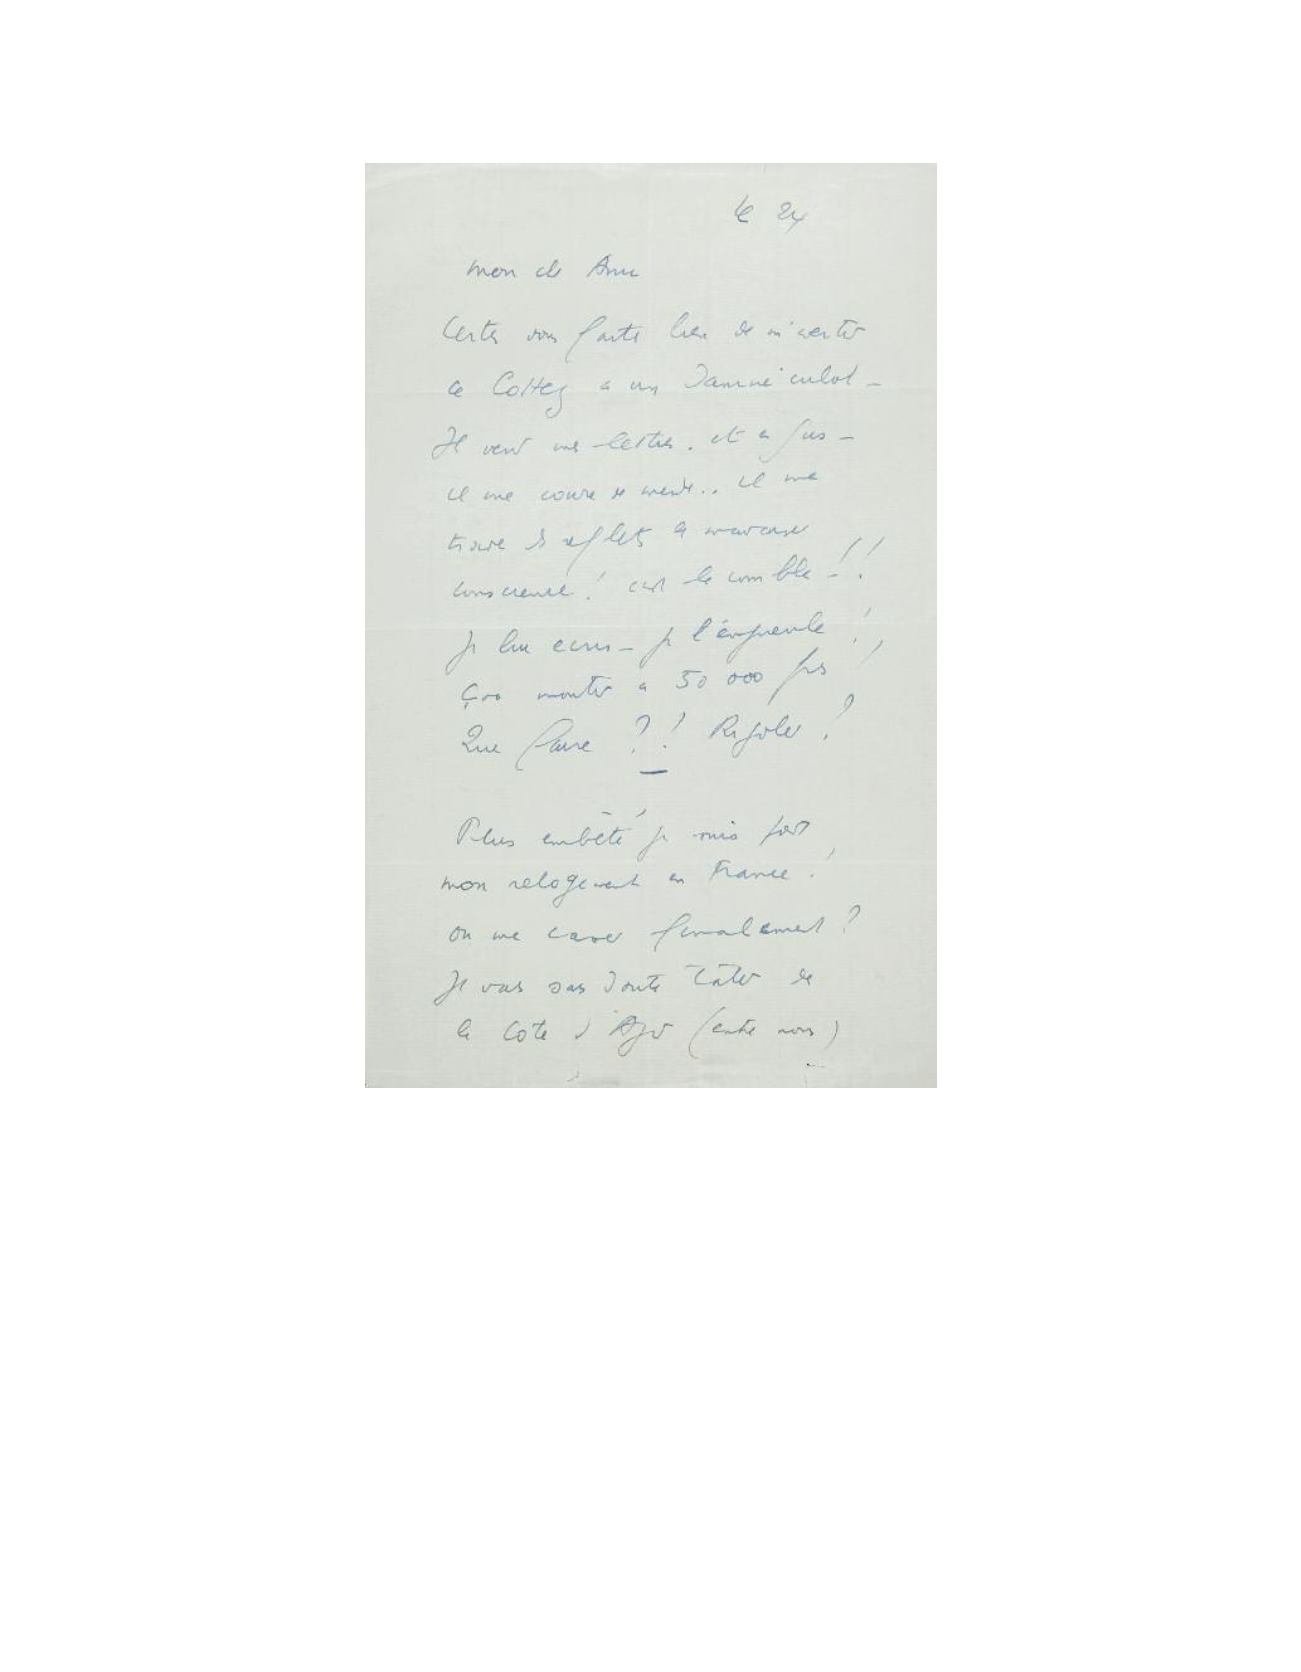 le 24
mon che Ami
Certes vous faite bien de m'avertir
ce Cottez a un Damné culot –
Il vend mes lettres. et en sus –
il me couvre de merde.. il me
trouve des reflets de mauvaise
conscience! c'est le comble!!
Je lui ecris – je l'engueule!
Ça monter a 50 000 frs!
Que faire ?! Rigoler!
Plus embêté je suis par
mon relogement en France!
ou me caser finalement?
Je vais sans doute Tâter de
la Cote d'Azur (entre nous)